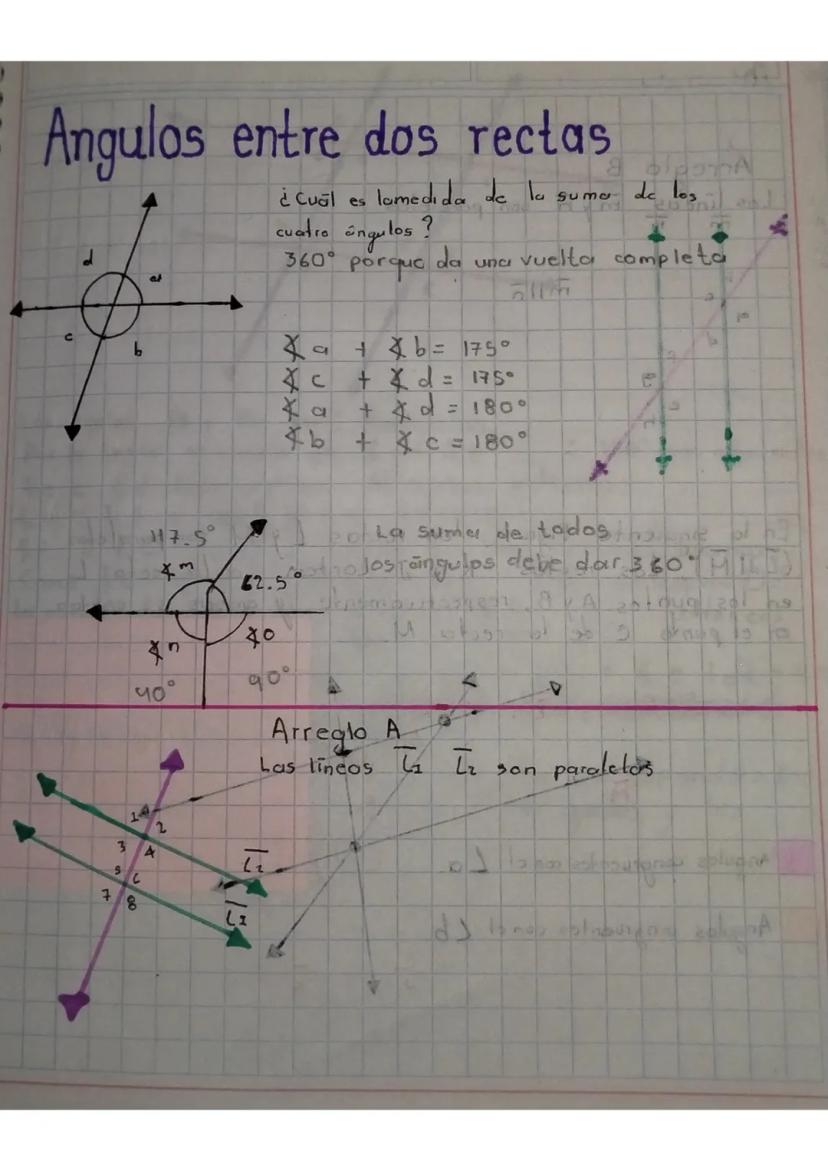 Angulos entre dos rectas
¿Cuál es lamedida de la suma de los
cuatro ángulos?
360° porque da una vuelta completa
d
a
c
b
∡a + ∡b = 175°
∡c + ∡d = 175°
∡a + ∡d = 180°
∡b + ∡c = 180°
117.5°
La suma de todos
los ángulos debe dar 360°
∡m
62.5°
∡n
∡o
90°
90°
Arreglo A
Las líneas L1 L2 son paralelas
1
2
3
4
5
6
7
8